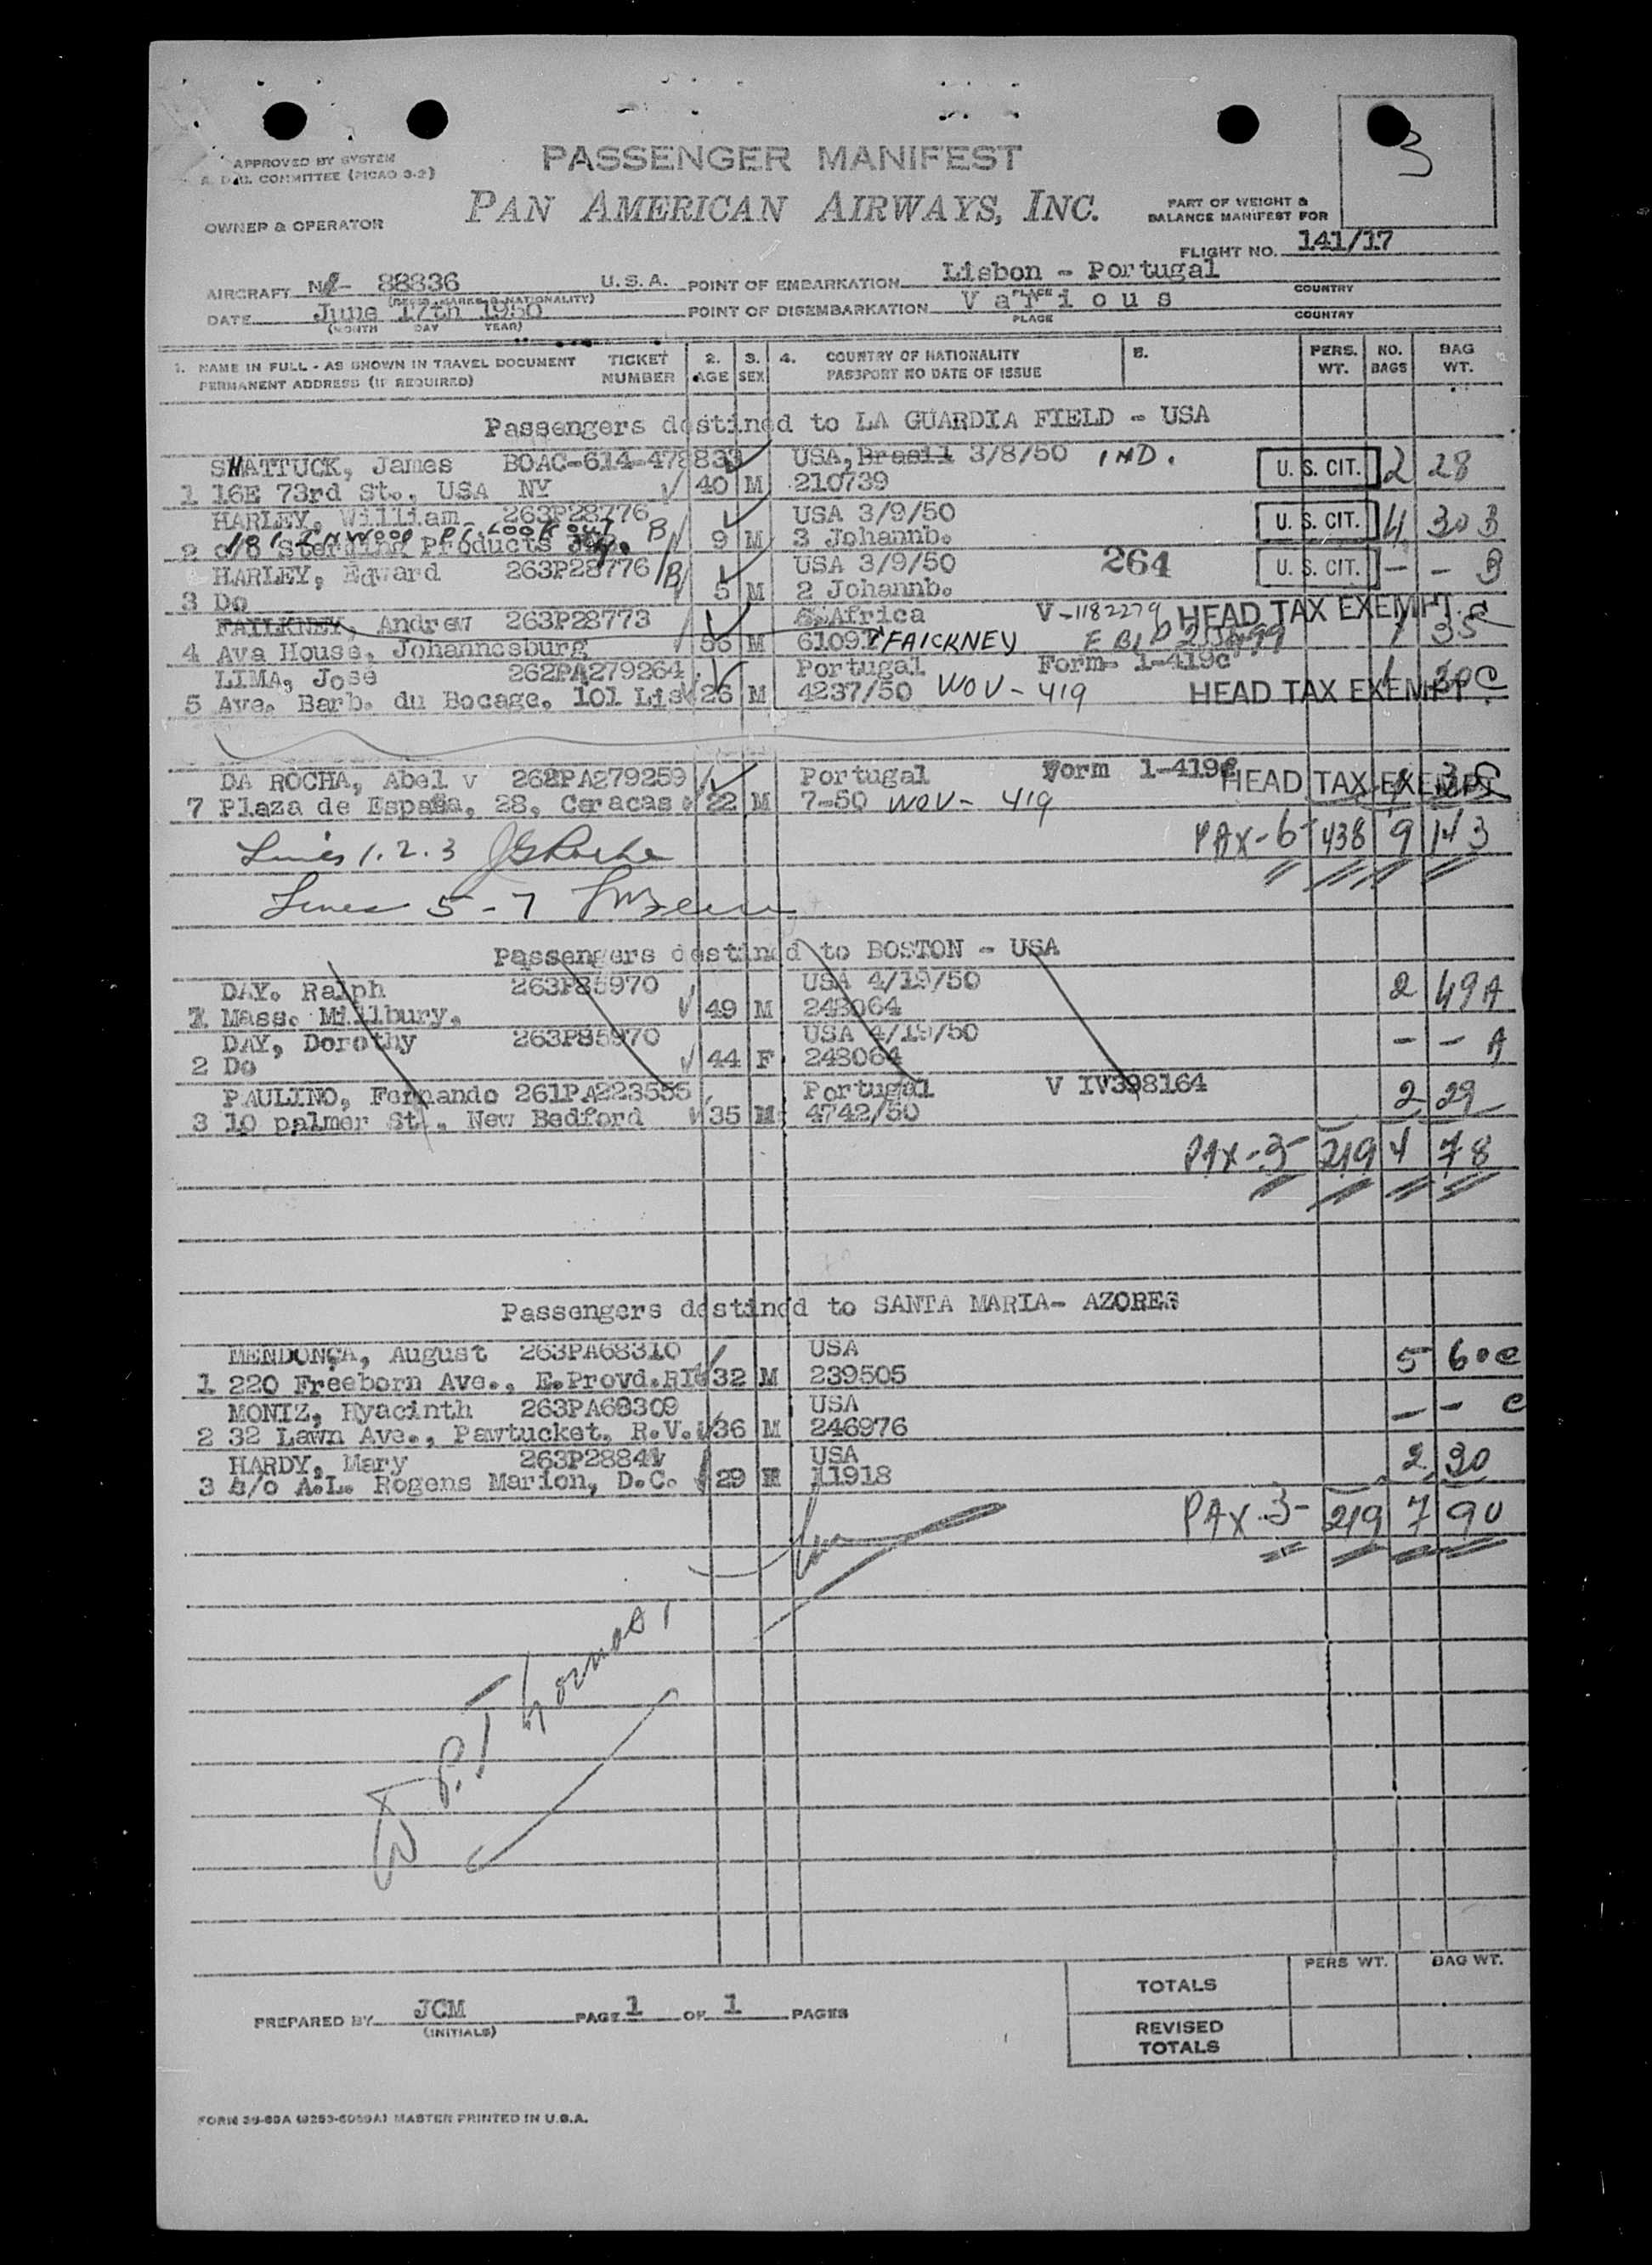 3
APPROVED BY SYSTEM
COMMITTEE (PICAO 3-2)
PASSENGER MANIFEST
PAN AMERICAN AIRWAYS, INC.
OWNER & OPERATOR
PART OF WEIGHT &
BALANCE MANIFEST FOR
FLIGHT NO. 141/17
AIRCRAFT N- 88836 U.S.A. POINT OF EMBARKATION Lisbon - Portugal
(REGIS. MARKS & NATIONALITY) PLACE COUNTRY
DATE June 17th 1950 POINT OF DISEMBARKATION Various
(MONTH DAY YEAR) PLACE COUNTRY
1. NAME IN FULL - AS SHOWN IN TRAVEL DOCUMENT TICKET 2. 3. 4. COUNTRY OF NATIONALITY B. PERS. NO. BAG
PERMANENT ADDRESS (IF REQUIRED) NUMBER AGE SEX PASSPORT NO DATE OF ISSUE WT. BAGS WT.
Passengers destined to LA GUARDIA FIELD - USA
SHATTUCK, James BOAC-614-478833 USA, Brasil 3/8/50 IND.
1 16E 73rd St., USA NY 40 M 210739 U. S. CIT. 2 28
HARLEY, William 263P28776 USA 3/9/50
2 c/o Sterling Products B 9 M 3 Johannb. U. S. CIT. 4 30 B
HARLEY, Edward 263P28776 B USA 3/9/50 264
3 Do 5 M 2 Johannb. U. S. CIT. - - B
FAULKNEY, Andrew 263P28773 S.Africa V-1182279 HEAD TAX EXEMPT
4 Ava House, Johannesburg 56 M 61091 FAICKNEY 1 35
LIMA, Jose 262PA279264 Portugal Form- 1-419c
5 Ave. Barb. du Bocage, 101 Lis 26 M 4237/50 WOV - 419 HEAD TAX EXEMPT 1 30 C
DA ROCHA, Abel v 262PA279259 Portugal Form 1-419c
7 Plaza de España, 28, Caracas 22 M 7-50 WOV - 419 HEAD TAX EXEMPT
Lines 1.2.3 PAX-6 438 9 143
Lines 5-7
Passengers destined to BOSTON - USA
DAY. Ralph 263P85970 USA 4/19/50
1 Mass. Millbury. 49 M 248064 2 49 A
DAY, Dorothy 263P85970 USA 4/19/50
2 Do 44 F 248064 - - A
PAULINO, Fernando 261PA223555 Portugal V IV398164
3 10 palmer St., New Bedford 35 M 4742/50 2 29
PAX-3 219 4 78
Passengers destined to SANTA MARIA- AZORES
MENDONÇA, August 263PA68310 USA
1 220 Freeborn Ave., E.Provd.RI 32 M 239505 5 60 C
MONIZ, Hyacinth 263PA68309 USA
2 32 Lawn Ave., Pawtucket, R.V. 36 M 246976 - - C
HARDY, Mary 263P28841 USA
3 c/o A.L. Rogens Marion, D.C. 29 11918 2 30
PAX-3- 219 7 90
PERS WT. BAG WT.
TOTALS
PREPARED BY JCM PAGE 1 OF 1 PAGES
(INITIALS)
REVISED
TOTALS
FORM 36-89A MASTER PRINTED IN U.S.A.